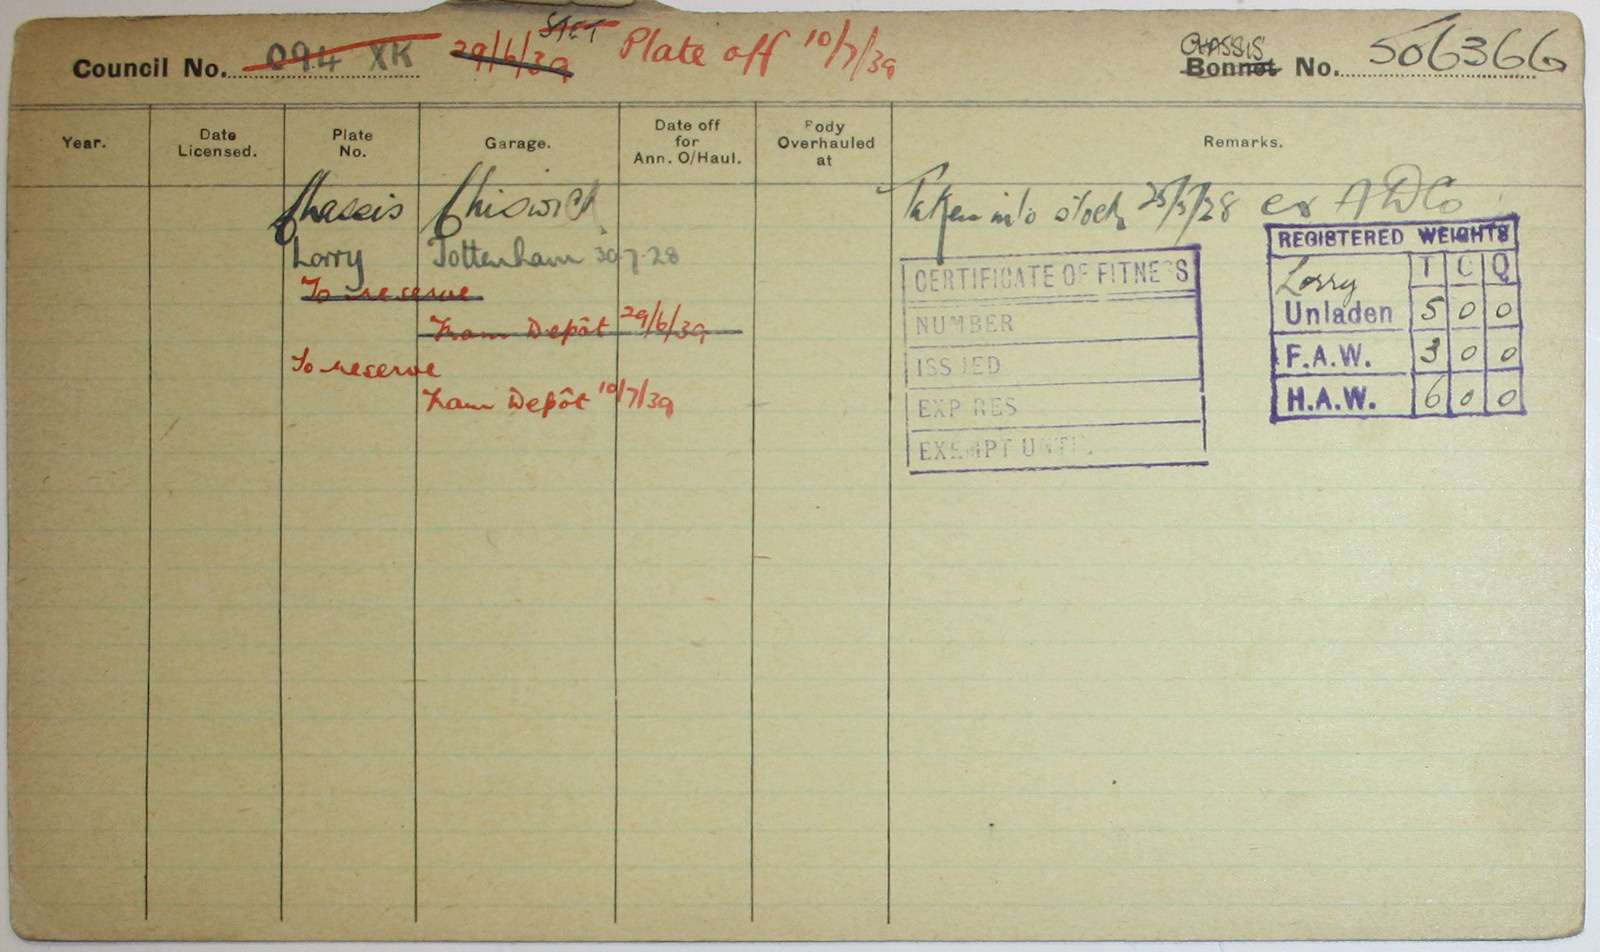 Council No. 094 XK 29/6/39 Plate off 10/7/39 CHASSIS Bonnet No. 506366
Year. Date Licensed. Plate No. Garage. Date off for Ann. O/Haul. Body Overhauled at Remarks.
Chassis Chiswick Taken into stock 25/5/28 ex ADCo
Lorry Tottenham 30-7-28
To reserve
Tram Depôt 29/6/39
To reserve
Tram Depôt 10/7/39
CERTIFICATE OF FITNESS
NUMBER
ISSUED
EXPIRES
EXEMPT UNTIL
REGISTERED WEIGHTS
Lorry T C Q
Unladen 5 0 0
F.A.W. 3 0 0
H.A.W. 6 0 0